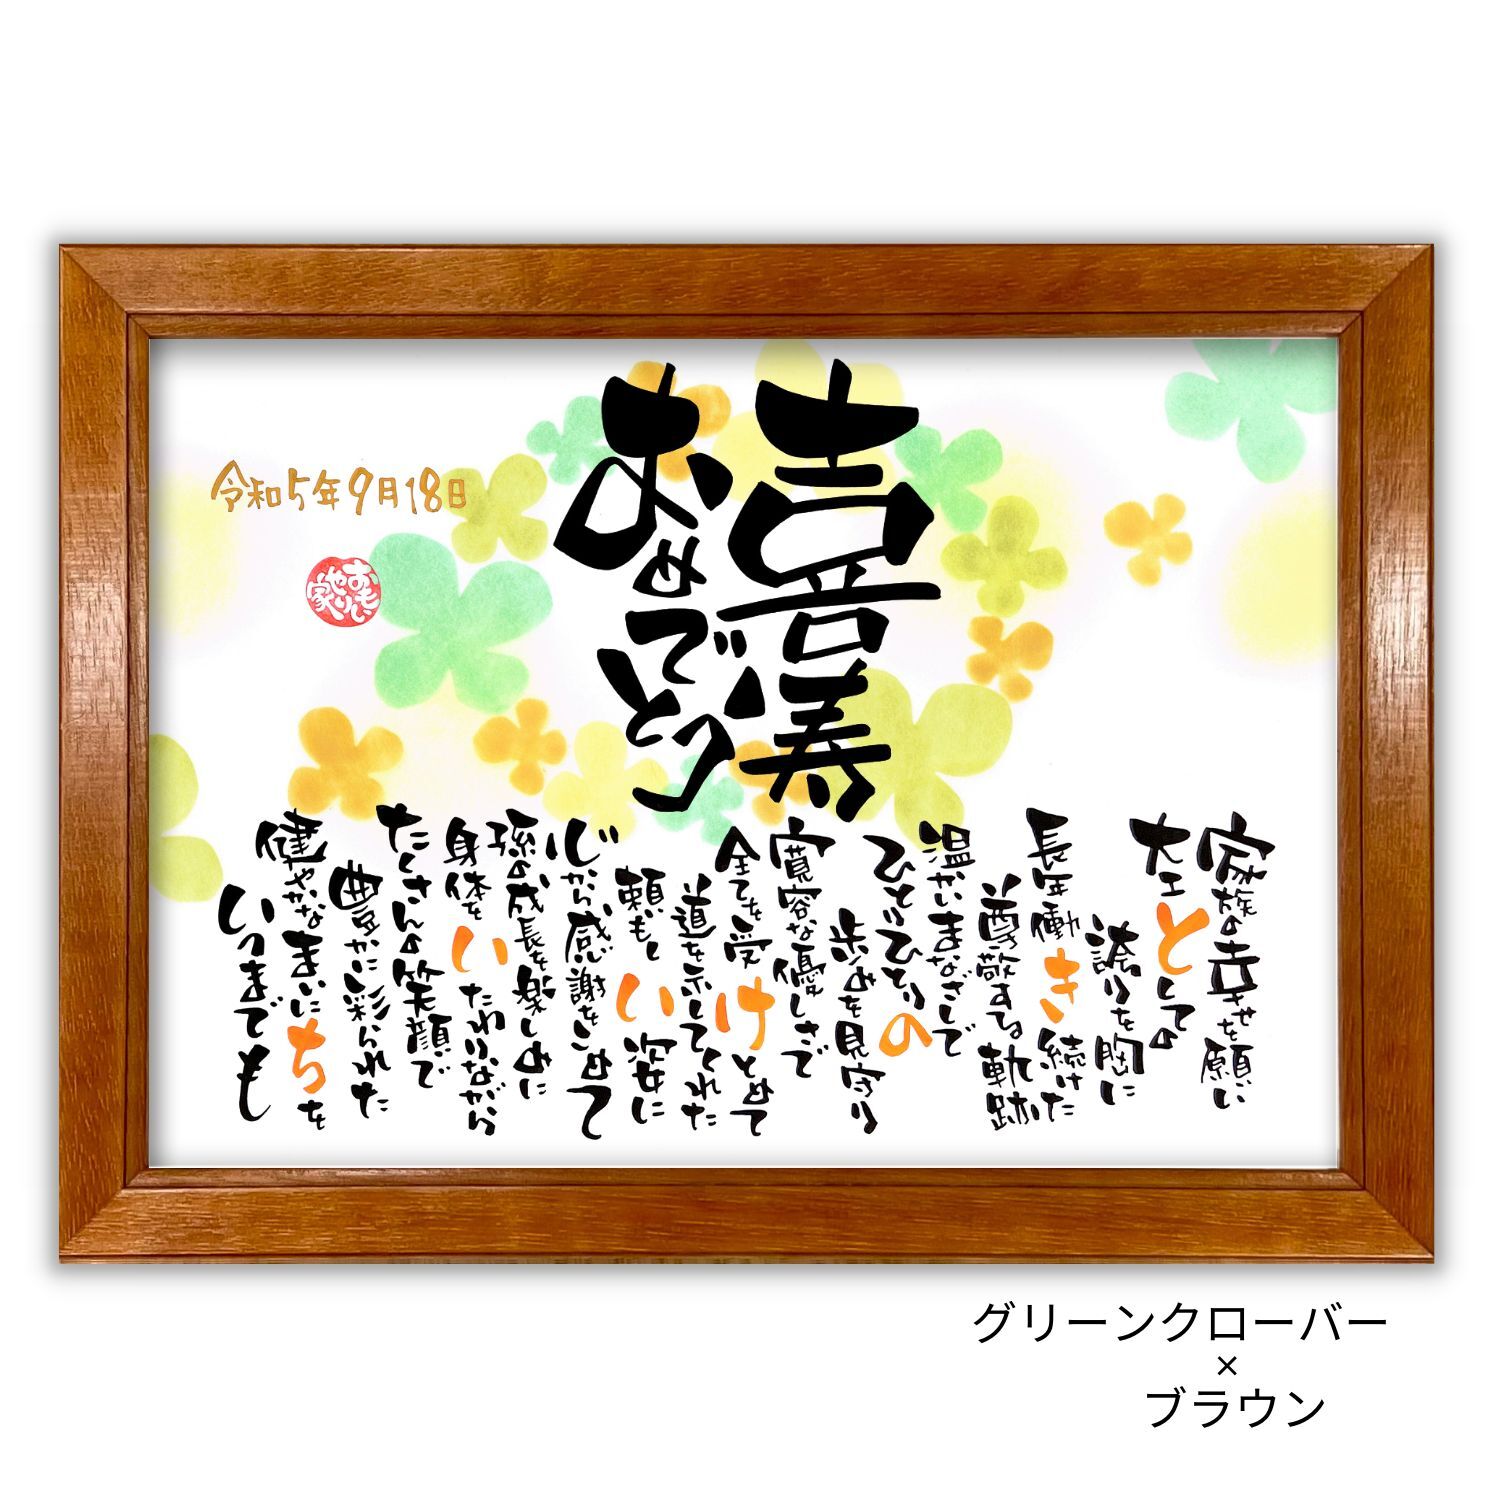 喜寿
おめでとう
令和5年9月18日
おもいやりい家
家族の幸せを願い
大工としての
誇りを胸に
長年働き続けた
尊敬する軌跡
温かいまなざしで
ひとりひとりの
歩みを見守り
寛容な優しさで
全てを受けとめて
道を示してくれた
頼もしい姿に
心から感謝をこめて
孫の成長を楽しみに
身体をいたわりながら
たくさんの笑顔で
豊かに彩られた
健やかなまいにちを
いつまでも
グリーンクローバー
×
ブラウン